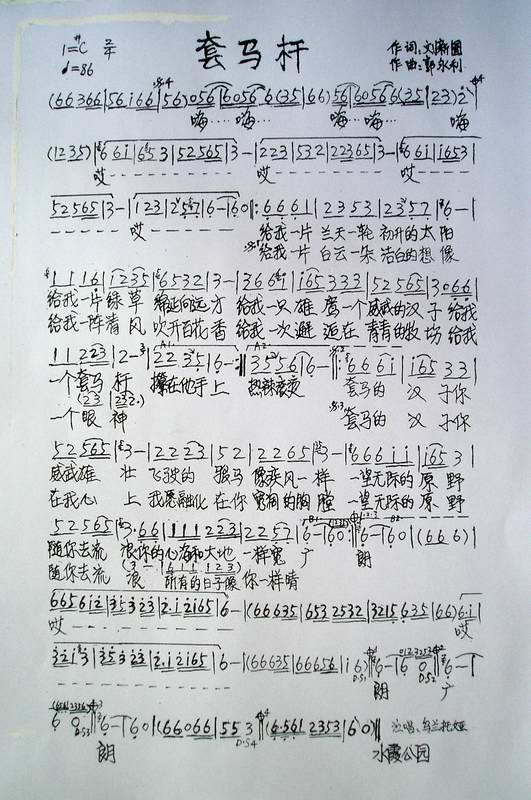 1=#C 2/4
套马杆
作词:刘新圈
♩=86
作曲:郭永利
(66366|56i66|56)056|60566(35|66)56|60566(35|23)i
嗨… 嗨… 嗨… 嗨… 嗨
(1235)|66i|6653|52565|3-|223|532|22365|3-|66i|i653|
哎 哎
52565|3-|123|2567|6-|60‖:6661|2353|2357|6-|
哎 给我一片 兰天一轮 初升的太阳
给我一片 白云一朵 洁白的想像
1116|1235|6532|3-|3666|i65333|52565|3066|
给我一片绿草 绵延向远方 给我一只雄鹰一个威武的汉子给我
给我一阵清风 吹开百花香 给我一次邂逅在青青的牧场给我
11223|2-|2235|6-:‖3556|6-‖:666i|i6533|
一个套马杆 攥在他手上 热辣滚烫 套马的 汉子你
(23|232.)
一个眼神 套马的 汉子你
52565|3-|2223|52|2265|3-|666ii|i653|
威武雄壮 飞驰的 骏马 像疾风一样 一望无际的原野
在我心上 我愿融化在你宽阔的胸膛 一望无际的原野
52565|3·66|111223|2257|6-|60:‖6-|60|(666)|
随你去流浪你的心海和大地 一样宽 广 朗
(3-|611|123)
随你去流浪 所有的日子像你一样晴
66566i2|353323|2·i2i65|6-|(66635|6532532|3215635|66)6·i|
哎 哎
32i3|353323|2·i2i65|6-|(66635|66656|i6)
D.S1 D.S2
朗 广
D.S3 60|(66066|553|(6·561|2353|60)‖
D.S4
演唱:乌兰托娅
朗 水霞公园